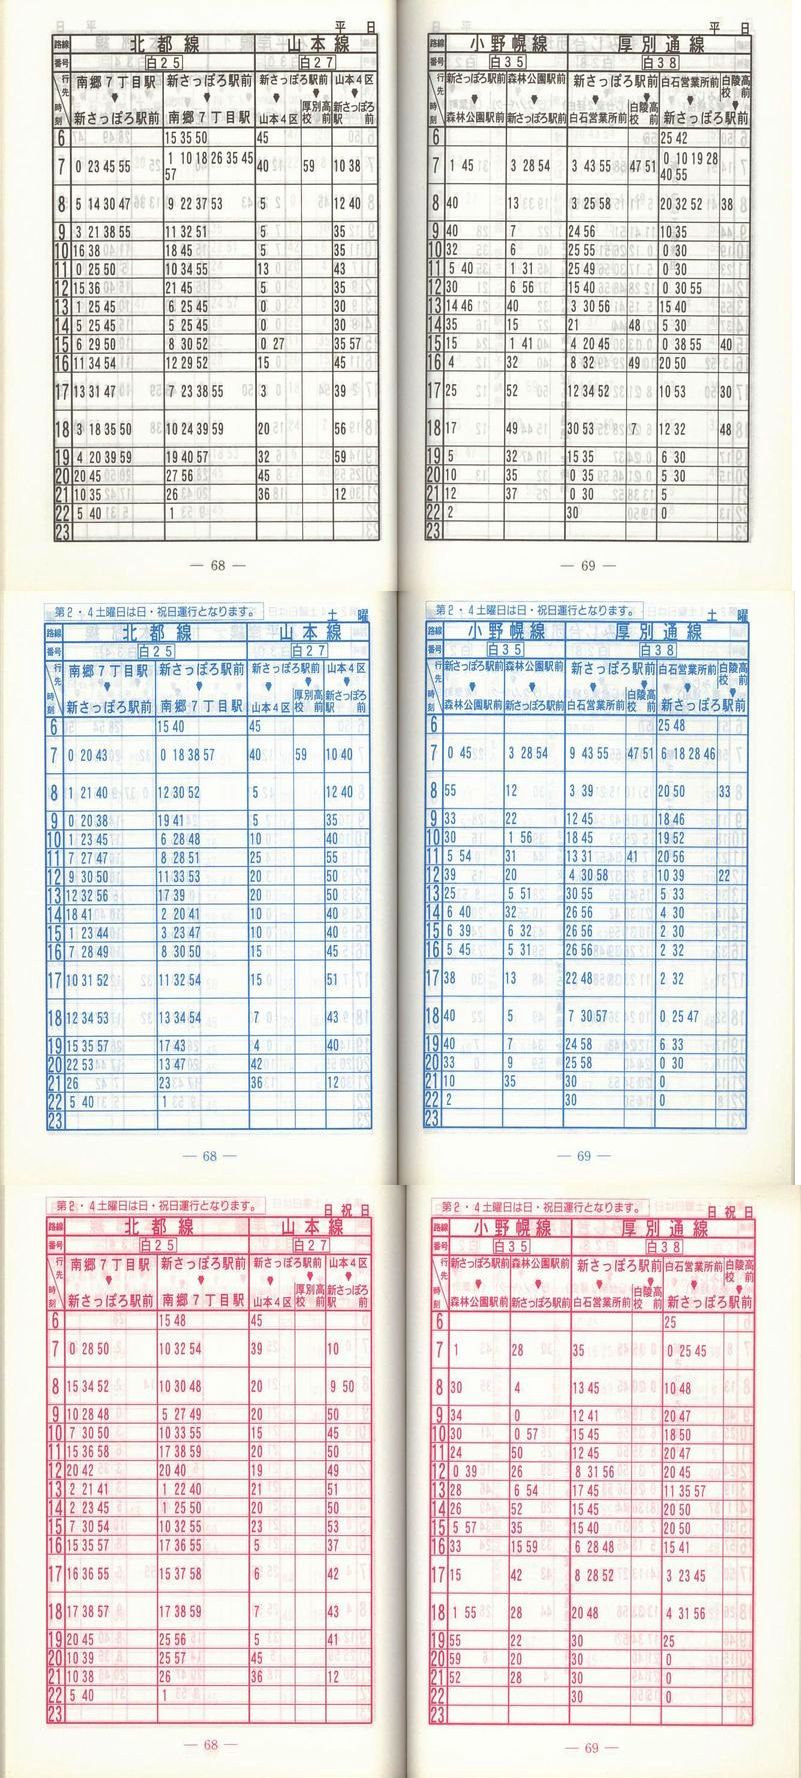 平 日
路線 北都線 山本線
番号 白25 白27
行先 南郷7丁目駅 新さっぽろ駅前 新さっぽろ駅前 山本4区
時刻 新さっぽろ駅前 南郷7丁目駅 山本4区 厚別高校前 新さっぽろ駅前
6 15 35 50 45
7 0 23 45 55 1 10 18 26 35 45 57 40 59 10 38
8 5 14 30 47 9 22 37 53 5 12 40
9 3 21 38 55 11 32 51 5 35
10 16 38 18 45 5 35
11 0 25 50 10 34 55 13 43
12 15 36 21 45 5 35
13 1 25 45 6 25 45 0 30
14 5 25 45 5 25 45 0 30
15 6 29 50 8 30 52 0 27 35 57
16 11 34 54 12 29 52 15 45
17 13 31 47 7 23 38 55 3 39
18 3 18 35 50 10 24 39 59 20 56
19 4 20 39 59 19 40 57 32 59
20 20 45 27 56 45
21 10 35 26 36 12
22 5 40 1
23
— 68 —
平 日
路線 小野幌線 厚別通線
番号 白35 白38
行先 新さっぽろ駅前 森林公園駅前 新さっぽろ駅前 白石営業所前 白陵高校前
時刻 森林公園駅前 新さっぽろ駅前 白石営業所前 白陵高校前 新さっぽろ駅前
6 25 42
7 1 45 3 28 54 3 43 55 47 51 0 10 19 28 40 55
8 40 13 3 25 58 20 32 52 38
9 40 7 24 56 10 35
10 32 6 25 55 0 30
11 5 40 1 31 25 49 0 30
12 30 6 56 15 40 0 30 55
13 14 46 40 3 30 56 15 40
14 35 15 27 21 48 5 30
15 15 1 41 4 20 45 0 38 55 40
16 4 32 8 32 49 20 50
17 25 52 12 34 52 10 53 30
18 17 49 30 53 7 12 32 48
19 5 32 15 35 6 30
20 10 35 0 35 5 30
21 12 37 0 30 5
22 2 30 0
23
— 69 —
第2・4土曜日は日・祝日運行となります。
土 曜
路線 北都線 山本線
番号 白25 白27
行先 南郷7丁目駅 新さっぽろ駅前 新さっぽろ駅前 山本4区
時刻 新さっぽろ駅前 南郷7丁目駅 山本4区 厚別高校前 新さっぽろ駅前
6 15 40 45
7 0 20 43 0 18 38 57 40 59 10 40
8 1 21 40 12 30 52 5 12 40
9 0 20 38 19 41 5 35
10 1 23 45 6 28 48 10 40
11 7 27 47 8 28 51 25 55
12 9 30 50 11 33 53 20 50
13 12 32 56 17 39 20 50
14 18 41 2 20 41 10 40
15 1 23 44 3 23 47 10 40
16 7 28 49 8 30 50 15 45
17 10 31 52 11 32 54 15 51
18 12 34 53 13 34 54 7 43
19 15 35 57 17 43 4 40
20 22 53 13 47 42
21 26 23 36 12
22 5 40 1
23
— 68 —
第2・4土曜日は日・祝日運行となります。
土 曜
路線 小野幌線 厚別通線
番号 白35 白38
行先 新さっぽろ駅前 森林公園駅前 新さっぽろ駅前 白石営業所前 白陵高校前
時刻 森林公園駅前 新さっぽろ駅前 白石営業所前 白陵高校前 新さっぽろ駅前
6 25 48
7 0 45 3 28 54 9 43 55 47 51 6 18 28 46
8 55 12 3 39 20 50 33
9 33 22 12 45 18 46
10 30 1 56 18 45 19 52
11 5 54 31 13 31 41 20 56
12 39 20 4 30 58 10 39 22
13 25 5 51 30 55 5 33
14 6 40 32 26 56 4 30
15 6 39 6 32 26 56 2 30
16 5 45 5 31 26 56 2 32
17 38 13 22 48 2 32
18 40 5 7 30 57 0 25 47
19 40 7 24 58 6 33
20 33 9 25 58 0 30
21 10 35 30 0
22 2 30 0
23
— 69 —
第2・4土曜日は日・祝日運行となります。
日 祝 日
路線 北都線 山本線
番号 白25 白27
行先 南郷7丁目駅 新さっぽろ駅前 新さっぽろ駅前 山本4区
時刻 新さっぽろ駅前 南郷7丁目駅 山本4区 厚別高校前 新さっぽろ駅前
6 15 48 45
7 0 28 50 10 32 54 39 10
8 15 34 52 10 30 48 20 9 50
9 10 28 48 5 27 49 20 50
10 7 30 50 10 33 55 15 45
11 15 36 58 17 38 59 20 50
12 20 42 20 40 19 49
13 2 21 41 1 22 40 21 51
14 2 23 45 1 25 50 20 50
15 7 30 54 10 32 55 23 53
16 15 35 57 17 36 55 5 37
17 16 36 55 15 37 58 6 42
18 17 38 57 17 38 59 7 43
19 20 45 25 56 5 41
20 10 39 25 57 45
21 10 38 26 36 12
22 5 40 1
23
— 68 —
第2・4土曜日は日・祝日運行となります。
日 祝 日
路線 小野幌線 厚別通線
番号 白35 白38
行先 新さっぽろ駅前 森林公園駅前 新さっぽろ駅前 白石営業所前 白陵高校前
時刻 森林公園駅前 新さっぽろ駅前 白石営業所前 白陵高校前 新さっぽろ駅前
6 25
7 1 28 35 0 25 45
8 30 4 13 45 10 48
9 34 0 12 41 20 47
10 30 0 57 15 45 18 50
11 24 50 12 45 20 47
12 0 39 26 8 31 56 20 45
13 28 6 54 17 45 11 35 57
14 26 52 15 45 20 50
15 5 57 35 15 40 20 50
16 33 15 59 6 28 48 15 41
17 15 42 8 28 52 3 23 45
18 1 55 28 20 48 4 31 56
19 55 22 30 25
20 59 20 30 0
21 52 28 30 0
22 30 0
23
— 69 —